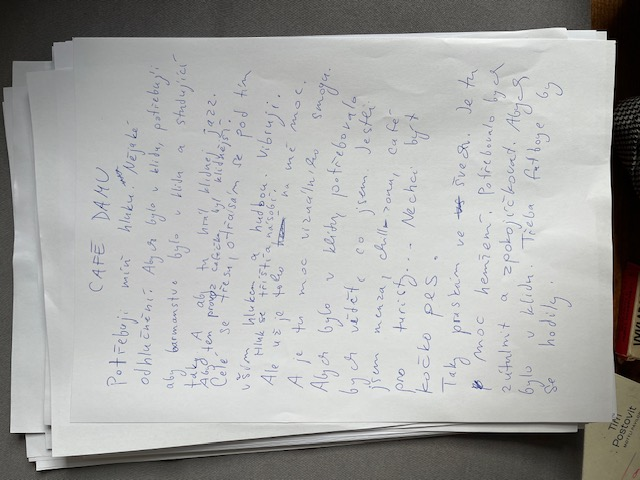 CAFÉ DAMU
Potřebuji míň hluku. Nějaké
odhlučnění. Abych bylo v klidu, potřebuji
aby barmanstvo bylo v klidu a studující
taky. A aby tu hrál klidnej jazz.
Aby ten provoz cafečka byl klidnější.
Celé se třesu, otřásám se pod tím
vším hlukem a hudbou. Vibruji.
Hluk se tříští a násobí.
Ale už je toho na mě moc.
A je tu moc vizuálního smogu.
Abych bylo v klidu, potřebovalo
bych vědět co jsem. Jestli
jsem menza, chill zona, café
pro turisty... Nechci být
kočko pes.
Taky praskám ve švech. Je tu
moc hemžení. Potřebovalo bych
zútulnit a zpokojíčkovat. Abych
bylo v klidu. Třeba fatboye by
se hodily.
POSTOVIT